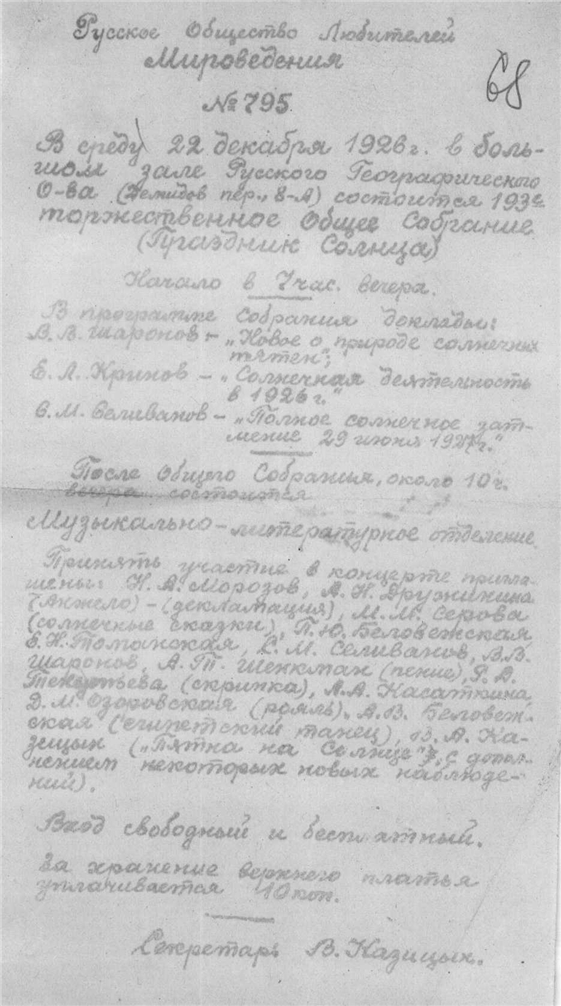 Русское Общество Любителей
Мироведения
68
№ 795.
В среду 22 декабря 1926 г. в боль-
шом зале Русского Географического
О-ва (Демидов пер., 8-А) состоится 193е
торжественное Общее Собрание
(Праздник Солнца)
Начало в 7 час. вечера.
В программе Собрания доклады:
В. В. Шаронов - „Новое о природе солнечных
пятен";
Е. Л. Кринов - „Солнечная деятельность
в 1926 г."
С. М. Селиванов - „Полное солнечное зат-
мение 29 июня 1927 г."
После Общего Собрания, около 10 г.
вечера состоится
Музыкально-литературное отделение
Принять участие в концерте пригла-
шены: Н. А. Морозов, А. Н. Дружинина
(Анжело) - (декламация), М. М. Серова
(солнечные сказки), П. Ю. Беловежская
Е. Н. Томанская, С. М. Селиванов, В. В.
Шаронов, А. Т. Шенкман (пение),
(скрипка), А. А. Касаткина,
Д. М. Озоровская (рояль), А. В. Беловеж-
ская (египетский танец), В. А. Ка-
зицын („Пятна на Солнце", с допол-
нением некоторых новых наблюде-
ний).
Вход свободный и бесплатный.
За хранение верхнего платья
уплачивается 10 коп.
Секретарь В. Казицын.